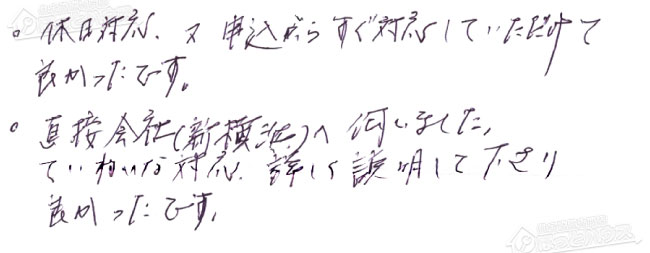 。休日対応、又申込からすぐ対応していただけて
良かったです。
。直接会社(新横浜)へ伺いました。
ていねいな対応、詳しく説明して下さり
良かったです。